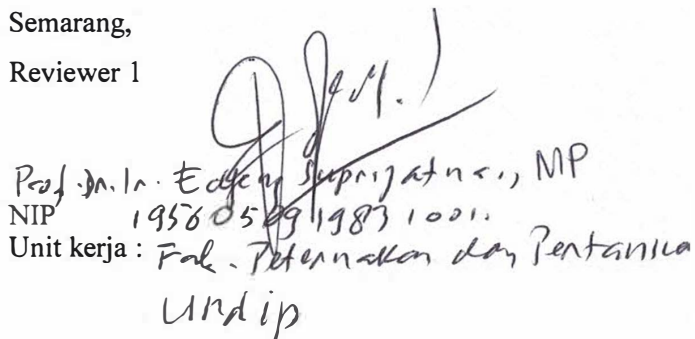 Semarang,
Reviewer 1
Prof. Dr. Ir. Edjeng Suprijatna, MP
NIP 19560509 198311001.
Unit kerja : Fak. Peternakan dan Pertanian
Undip